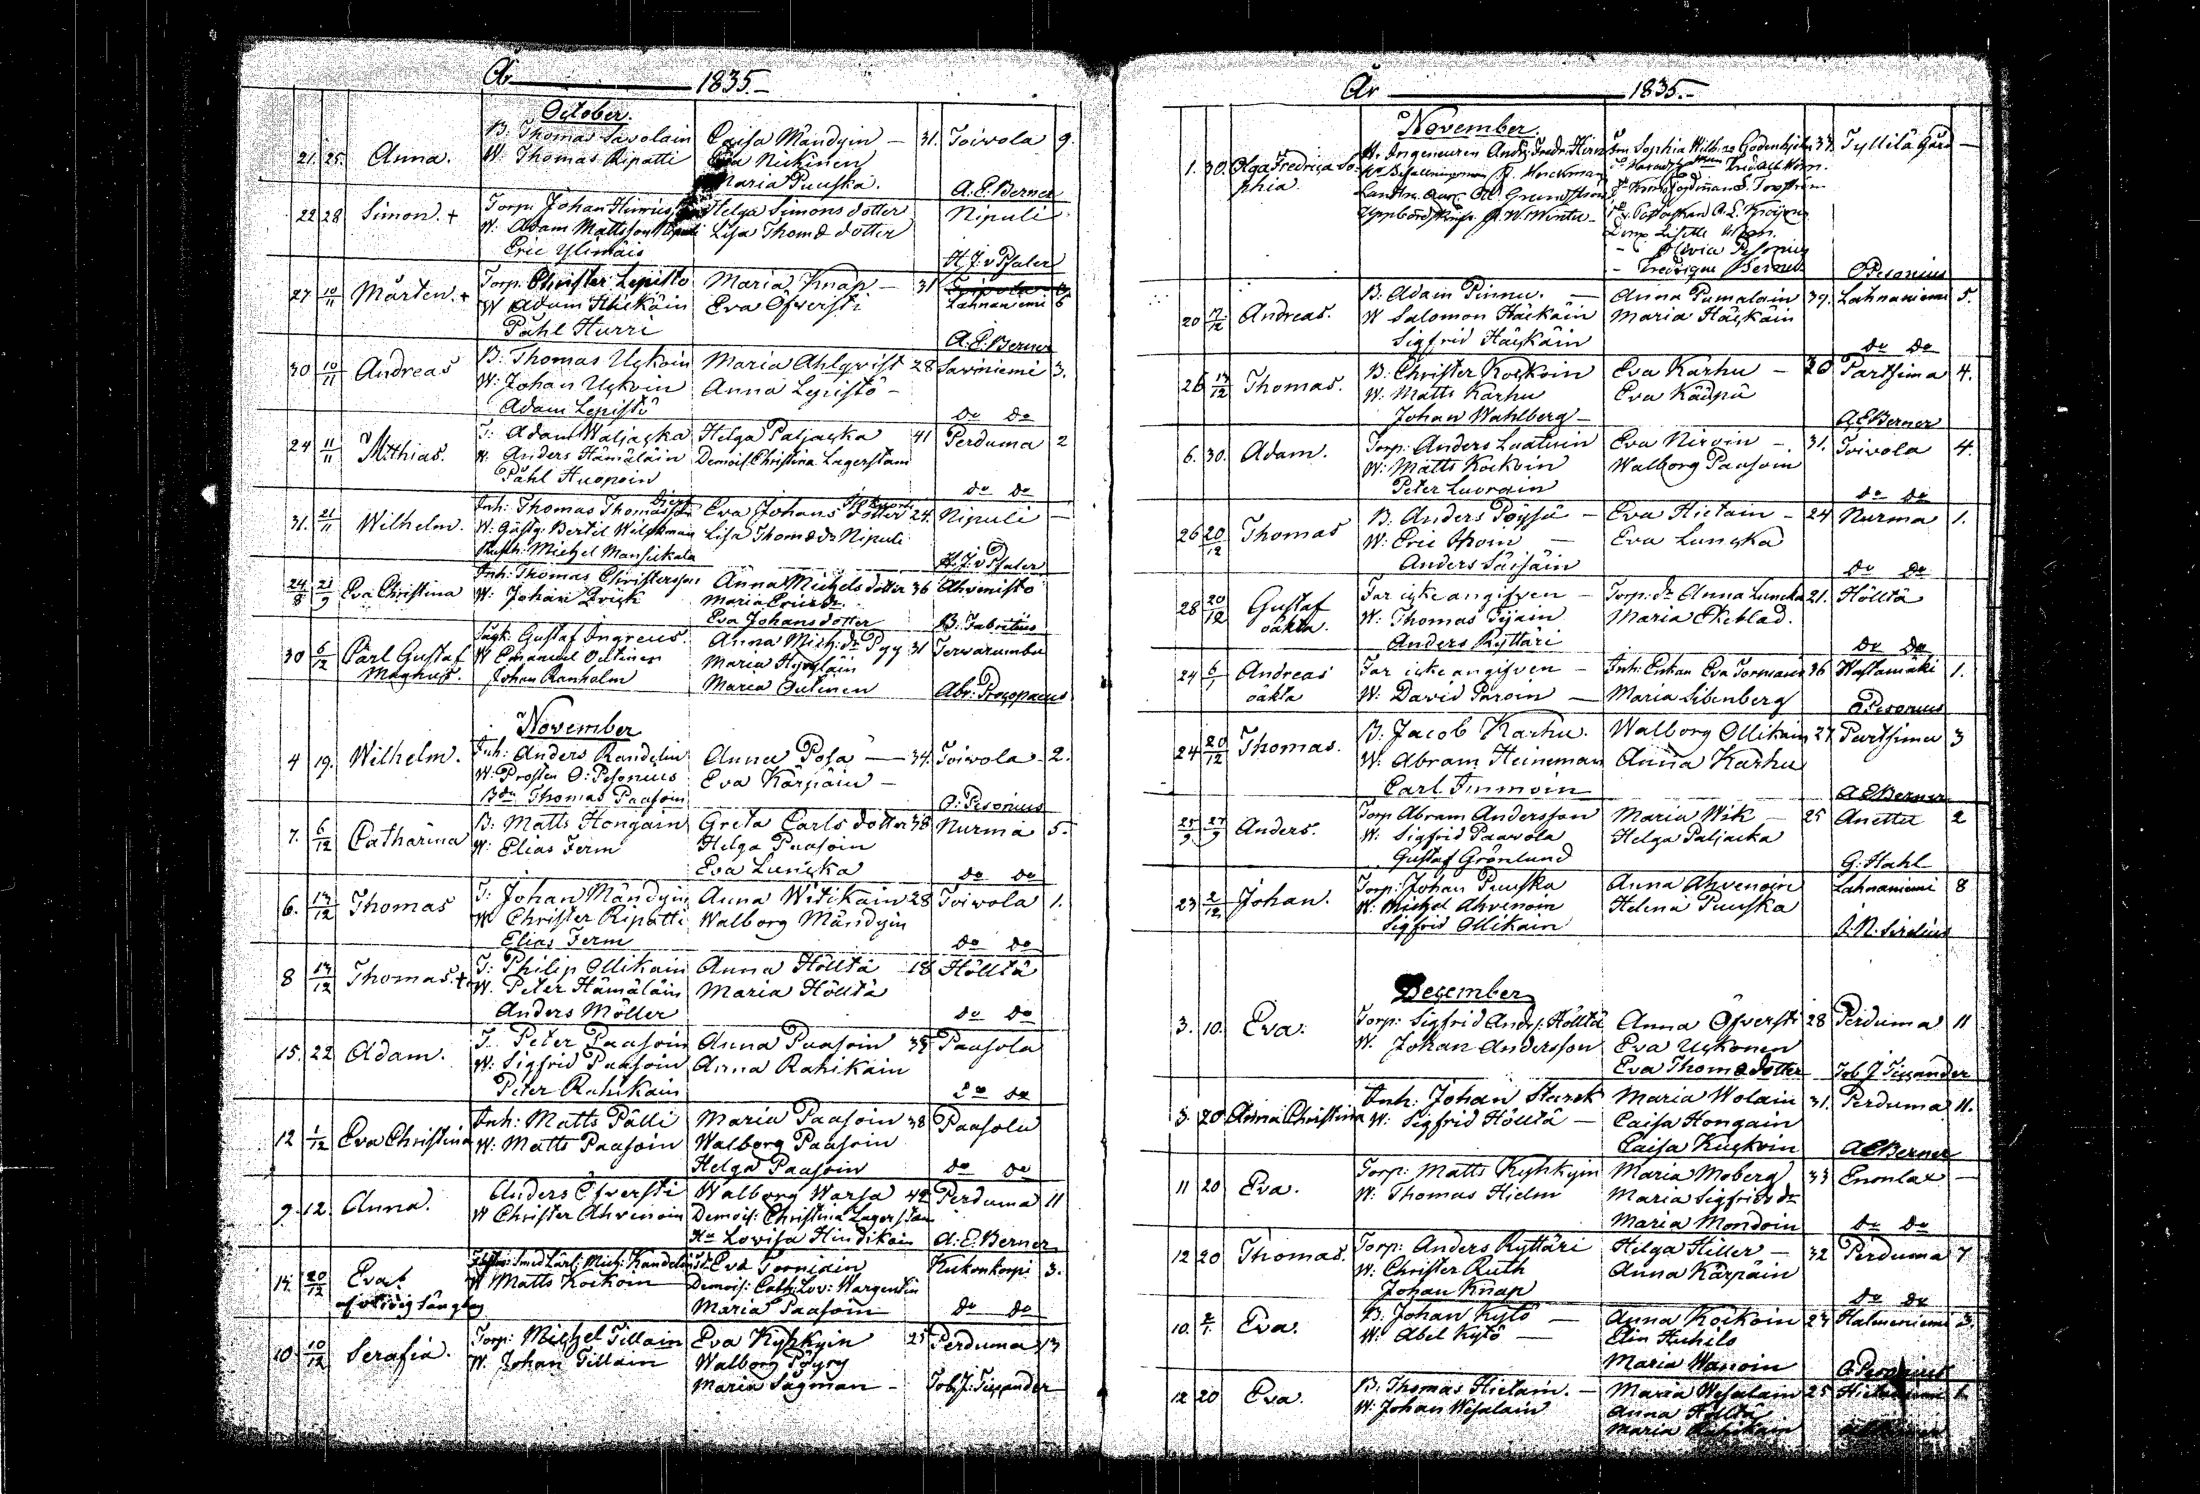 År 1835.-
October.
21. 25. Anna. B. Thomas Savolain Caisa Mändyin - 31. Toivola 9.
W. Thomas Ripatti Nickinen
Maria Puuska. A. E. Berner
22 28 Simon. + Torp. Johan Helga Simons dotter Nipuli
W. Adam Mattsson Lisa Thom dotter
Eric Ylimäis H. J. v Pfaler
27 10/11 Mårten. + Torp. Christer Lepistö Maria Knap - 31
W Adam Häikäin Eva Öfversti Lahnaniemi 6
Påhl Hurri A. E. Berner
30 10/11 Andreas B. Thomas Uskoin Maria Ahlqvist 28 Saviniemi 3.
W. Johan Uskoin Anna Lepistö -
Adam Lepistö do do
24 11/11 Mthias. T. Adam Waljacka Helga Paljacka 41 Perduma 2
W. Anders Hämäläin Demois. Christina Lagerstam
Påhl Huopoin do do
31. 21/11 Wilhelm. Inh. Thomas Thomasson Eva Johans dotter 24. Nipuli -
W. Gästg. Bertil Lisa Thom dr Nipuli
Michel Mansickala H. J. v Pfaler
24/8 21/9 Eva Christina Inh. Thomas Christersson Anna Michels dotter 36 Ahvenisto
W. Johan Maria Erics dr
Eva Johans dotter B. Fabritius
30 6/12 Carl Gustaf Gustaf Ingreus Anna Mich. dr Pyy 31 Terwarumbu
Magnus. W Emanuel Outinen Maria
Johan Ranholm Maria Outinen Abr.
November
4 19. Wilhelm. Inh. Anders Randelin Anna Posa - 34. Toivola 2.
W. Prosten O. Pesonius Eva Kärpäin -
Bdn Thomas Paasoin O. Pesonius
7. 6/12 Catharina B. Matts Hongain Greta Carls dotter 38 Nurmå 5.
W. Elias Ferm Helga Paasoin
Eva Lunska do do
6. 13/12 Thomas T. Johan Mändyin Anna Witikain 28 Toivola 1.
W. Christer Ripatti Walborg Mändyin
Elias Ferm do do
8 13/12 Thomas. + T. Philip Ollikain Anna Hölltä 18 Hölltä
W. Peter Hämäläin Maria Hölltä
Anders Möller do do
15. 22 Adam. T. Peter Paasoin Anna Paasoin Paasola
W. Sigfrid Paasoin Anna Rahikain
Peter Rahikain do do
12 1/12 Eva Christina Inh. Matts Pälli Maria Paasoin 38 Paasola
W. Matts Paasoin Walborg Paasoin
Helga Paasoin do do
9. 12. Anna. Anders Öfversti Walborg Warsa 42 Perduma 11
W Christer Ahvenoin Demois: Christina Lagerstam
Lovisa Hindikain A. E. Berner
14. 20/12 Eva. Mich. Kandelin Eva Torniain Kukonkorpi 3.
W Matts Koikoin Demois: Cath. Lov: Wargentin
Maria Paasoin do do
10 10/12 Serafia. Torp: Michel Tillain Eva Kyhkyin 25 Perduma 13
W. Johan Tillain Walborg Pöyry
Maria Sagman - Tob. J. Tissander
År 1835.-
November.
1. 30. Olga Fredrica So- H. Ingeneuren Fru Sophia Godenhjelm 37. Tyllilä Gård -
phia
Fredrique Berner O Pesonius
20 17/12 Andreas. B. Adam Pinnu. - Anna Pumalain 39. Lahnaniemi 5.
W Salomon Häikäin Maria Häikäin
Sigfrid Häikäin do do
26 13/12 Thomas. B. Christer Koikoin Eva Karhu - 20 Partsima 4.
W. Matts Karhu Eva Käupä
Johan Wahlberg - A E Berner
6. 30. Adam. Torp: Anders Luatuin Eva Nirvin - 31. Toivola 4.
W. Matts Koikoin Walborg Paasoin
Peter Luorain do do
26 20/12 Thomas B. Anders Pöysä - Eva Hietain - 24 Nurma 1.
W. Eric Thom - Eva Lunska
Anders Säisäin do do
28 20/12 Gustaf Far icke angifven - Torp: dr Anna Luncka 21. Hölltä
oäkta. W. Thomas Tijain Maria Ekeblad.
Anders Ryttäri do do
24 6/1 Andreas Far icke angifven - Inh. Enkan Eva Tormanen 36 Hastamäki 1.
oäkta W. David Paroin - Maria Libenberg O Pesonius
24 20/12 Thomas. B. Jacob Karhu. Walborg Ollikain 27 Partsima 3
W. Abram Heineman Anna Karhu
Carl Immoin A E Berner
25/9 27/9 Anders. Torp Abram Andersson Maria Wik - 25 Anettu 2
W. Sigfrid Paavola Helga Paljacka
Gustaf Grönlund G. Hahl
23 2/12 Johan. Torp: Johan Puuska Anna Ahvenoin Lahnaniemi 8
W. Michel Ahvenoin Helena Puuska
Sigfrid Ollikain J. N. Sirelius
December
3. 10. Eva. Torp: Sigfrid Ands: Hölltä Anna Öfversti 28 Perduma 11
W. Johan Andersson Eva Uskonen
Eva Thom dotter Tob J. Tissander
3. 20 Anna Christina Inh. Johan Starck Maria Wolain 31. Perduma 11.
W. Sigfrid Hölltä - Caisa Hongain
Caisa Kuskoin A E Berner
11 20 Eva. Torp: Matts Kyhkyin Maria Moberg 33 Enonlax -
W. Thomas Hielm Maria Sigfrids dr
Maria Mondoin do do
12 20 Thomas. Torp: Anders Ryttäri Helga Hiller - 32 Perduma 7
W. Christer Ruth Anna Kärpäin
Johan Knap do do
10. 2/1. Eva. B. Johan Kytö - Anna Koikoin 23 Halmeniemi 3.
W. Abel Kytö - Elin
Maria Wanoin O. Pesonius
12 20 Eva. B. Thomas Hietain. - Maria Wesalain 25
W. Johan Wesalain Anna Hölltä
Maria